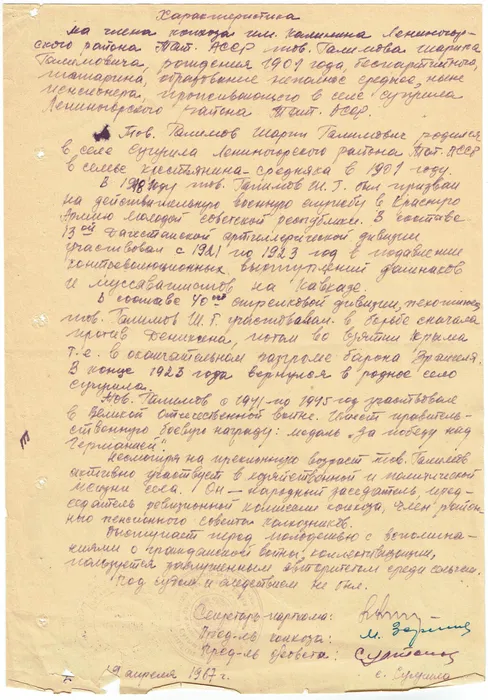 Характеристика
на члена колхоза им. Калинина Лениногор-
ского района Тат. АССР тов. Галимова Шарипа
Галимовича, рождения 1901 года, беспартийного,
татарина, образование неполное среднее, ныне
пенсионера, проживающего в селе Сугушла
Лениногорского района Тат. АССР.
Тов. Галимов Шарип Галимович родился
в селе Сугушла Лениногорского района Тат. АССР
в семье крестьянина-середняка в 1901 году.
В году тов. Галимов Ш.Г. был призван
на действительную военную службу в Красную
Армию молодой советской республики. В составе
13ой Дагестанской артиллерийской дивизии
участвовал с 1921 по 1923 год в подавлении
контрреволюционных выступлений дашнаков
и мусаватистов на Кавказе.
В составе 40ой стрелковой дивизии, пехотинец
тов. Галимов Ш.Г. участвовал в борьбе сначала
против Деникина, потом во взятии Крыма
т.е. в окончательном разгроме барона Врангеля.
В конце 1923 года вернулся в родное село
Сугушла.
Тов. Галимов с 1941 по 1945 год участвовал
в Великой Отечественной войне. Имеет правитель-
ственную боевую награду: медаль „За победу над
Германией".
Несмотря на преклонный возраст тов. Галимов
активно участвует в хозяйственной и политической
жизни села. Он — народный заседатель, пред-
седатель ревизионной комиссии колхоза, член район-
ного пенсионного совета колхозников.
Выступает перед молодежью с воспомина-
ниями о гражданской войне, коллективизации,
пользуется заслуженным авторитетом среди сельчан.
Под судом и следствием не был.
Секретарь парткома:
Пред-ль колхоза:
Пред-ль с/совета:
апреля 1967 г.
с. Сугушла